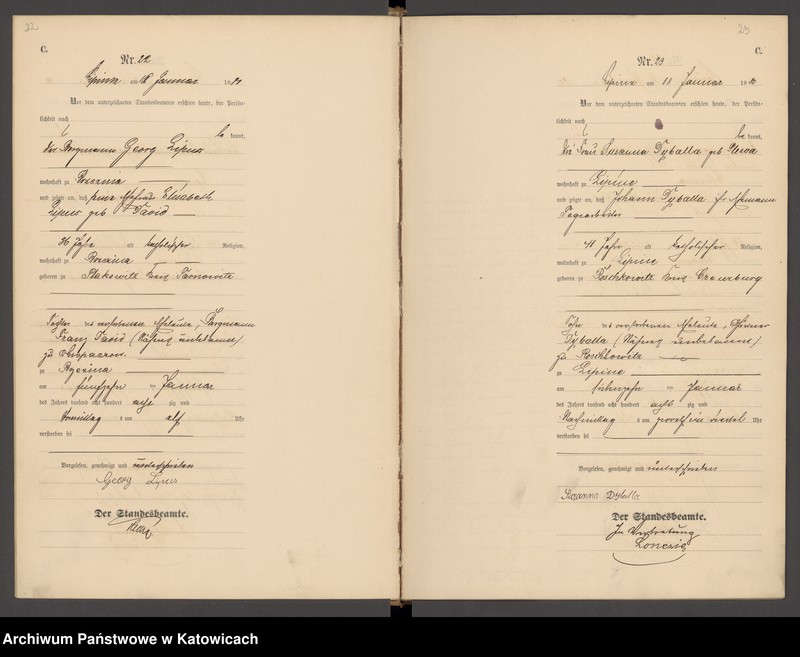 22
C.
Nr. 22
Lipine am 18 Januar 1880
Vor dem unterzeichneten Standesbeamten erschien heute, der Persön-
lichkeit nach
be kannt,
der Bergmann Georg Lipus
wohnhaft zu Brzezina
und zeigte an, daß seine Ehefrau Elisabeth
Lipus geb David
36 Jahre alt katholischer Religion,
wohnhaft zu Brzezina
geboren zu Kreis Tarnowitz
Tochter des verstorbenen Eheleute, Bergmann
Franz David (Näheres unbekannt)
zu
zu Brzezina
am fünfzehn ten Januar
des Jahres tausend acht hundert acht zig und
Vormittag s um elf Uhr
verstorben sei
Vorgelesen, genehmigt und unterschrieben
Georg Lipus
Der Standesbeamte.
23
C.
Nr. 23
Lipine am 18 Januar 1880
Vor dem unterzeichneten Standesbeamten erschien heute, der Persön-
lichkeit nach
be kannt,
die Frau Susanna Dyballa geb
wohnhaft zu Lipine
und zeigte an, daß Johann Dyballa ihr Ehemann
Tagearbeiter
41 Jahre alt katholischer Religion,
wohnhaft zu Lipine
geboren zu Poschkowitz Kreis Creuzburg
Sohn des verstorbenen Eheleute,
Dyballa (Näheres unbekannt)
zu Poschkowitz
zu Lipine
am ten Januar
des Jahres tausend acht hundert acht zig und
Nachmittag s um viertel Uhr
verstorben sei
Vorgelesen, genehmigt und unterschrieben
Susanna Dyballa
Der Standesbeamte.
In Vertretung
Archiwum Państwowe w Katowicach